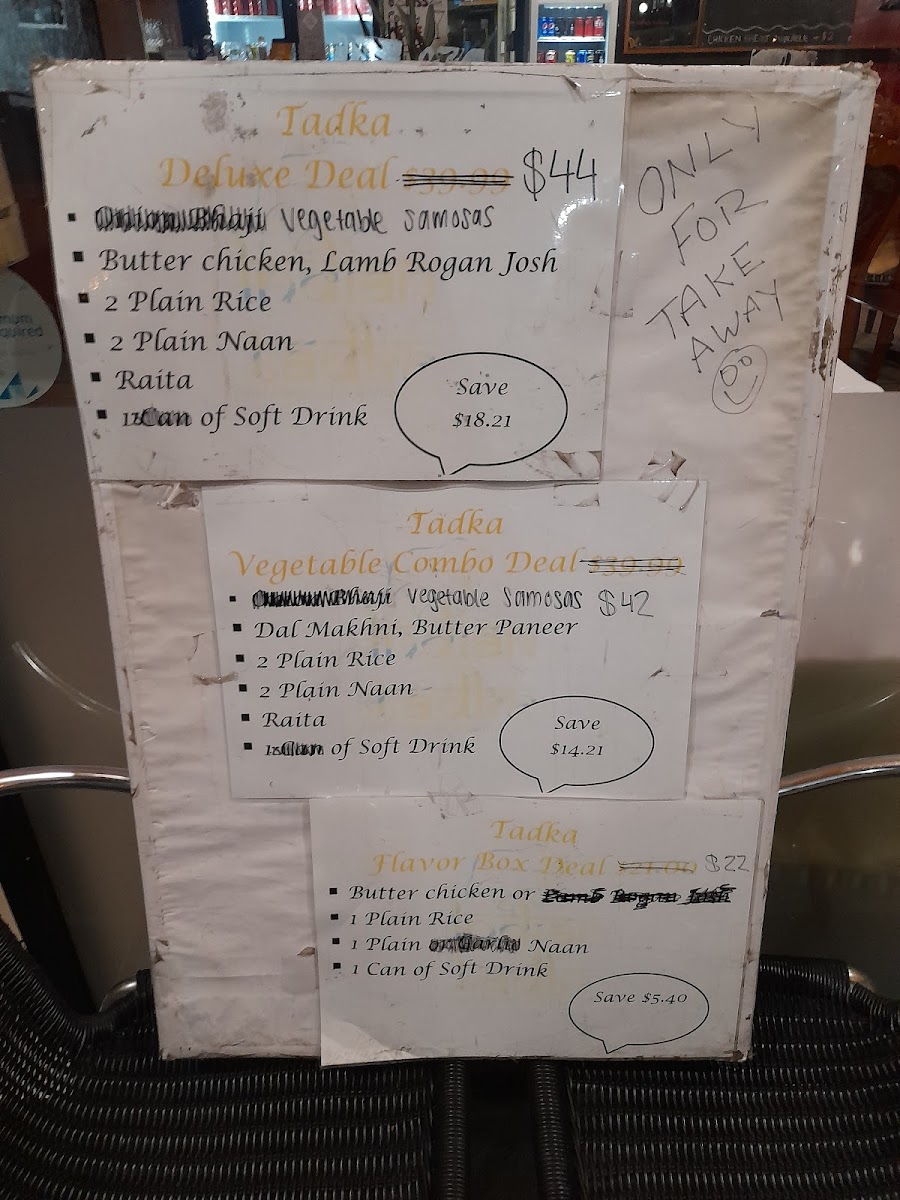 CHICKEN
Tadka
Deluxe Deal $39.99 $44
Onion Bhaji Vegetable Samosas
Butter chicken, Lamb Rogan Josh
2 Plain Rice
2 Plain Naan
Raita
Can of Soft Drink
Save
$18.21
ONLY
FOR
TAKE
AWAY
Tadka
Vegetable Combo Deal $39.99
Bhaji Vegetable Samosas $42
Dal Makhni, Butter Paneer
2 Plain Rice
2 Plain Naan
Raita
Can of Soft Drink
Save
$14.21
Tadka
Flavor Box Deal $21.00 $22
Butter chicken or Lamb Rogan Josh
1 Plain Rice
1 Plain or Garlic Naan
1 Can of Soft Drink
Save $5.40